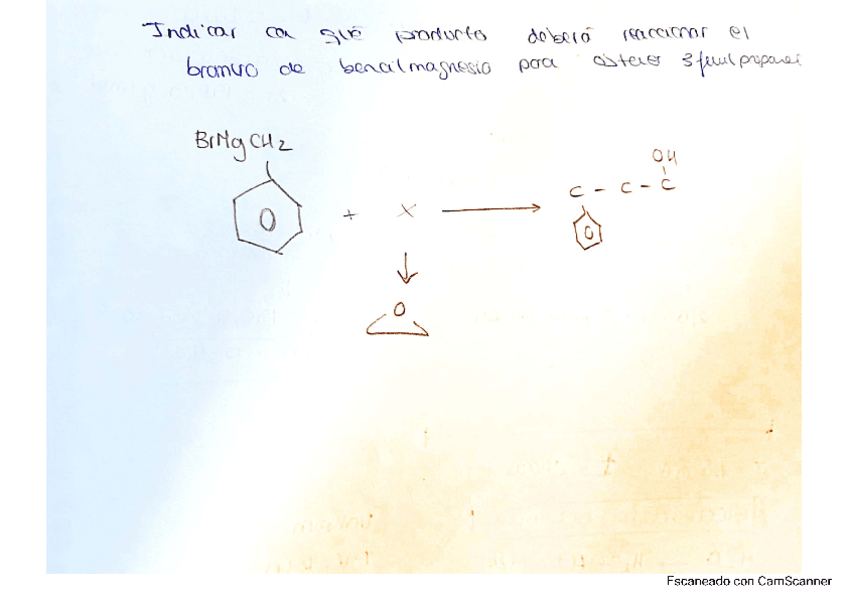 Indicar con qué producto deberá reaccionar el
bromuro de bencilmagnesio para obtener
BrMgCH2
OH
+ X
C - C - C
O
O
O
Escaneado con CamScanner